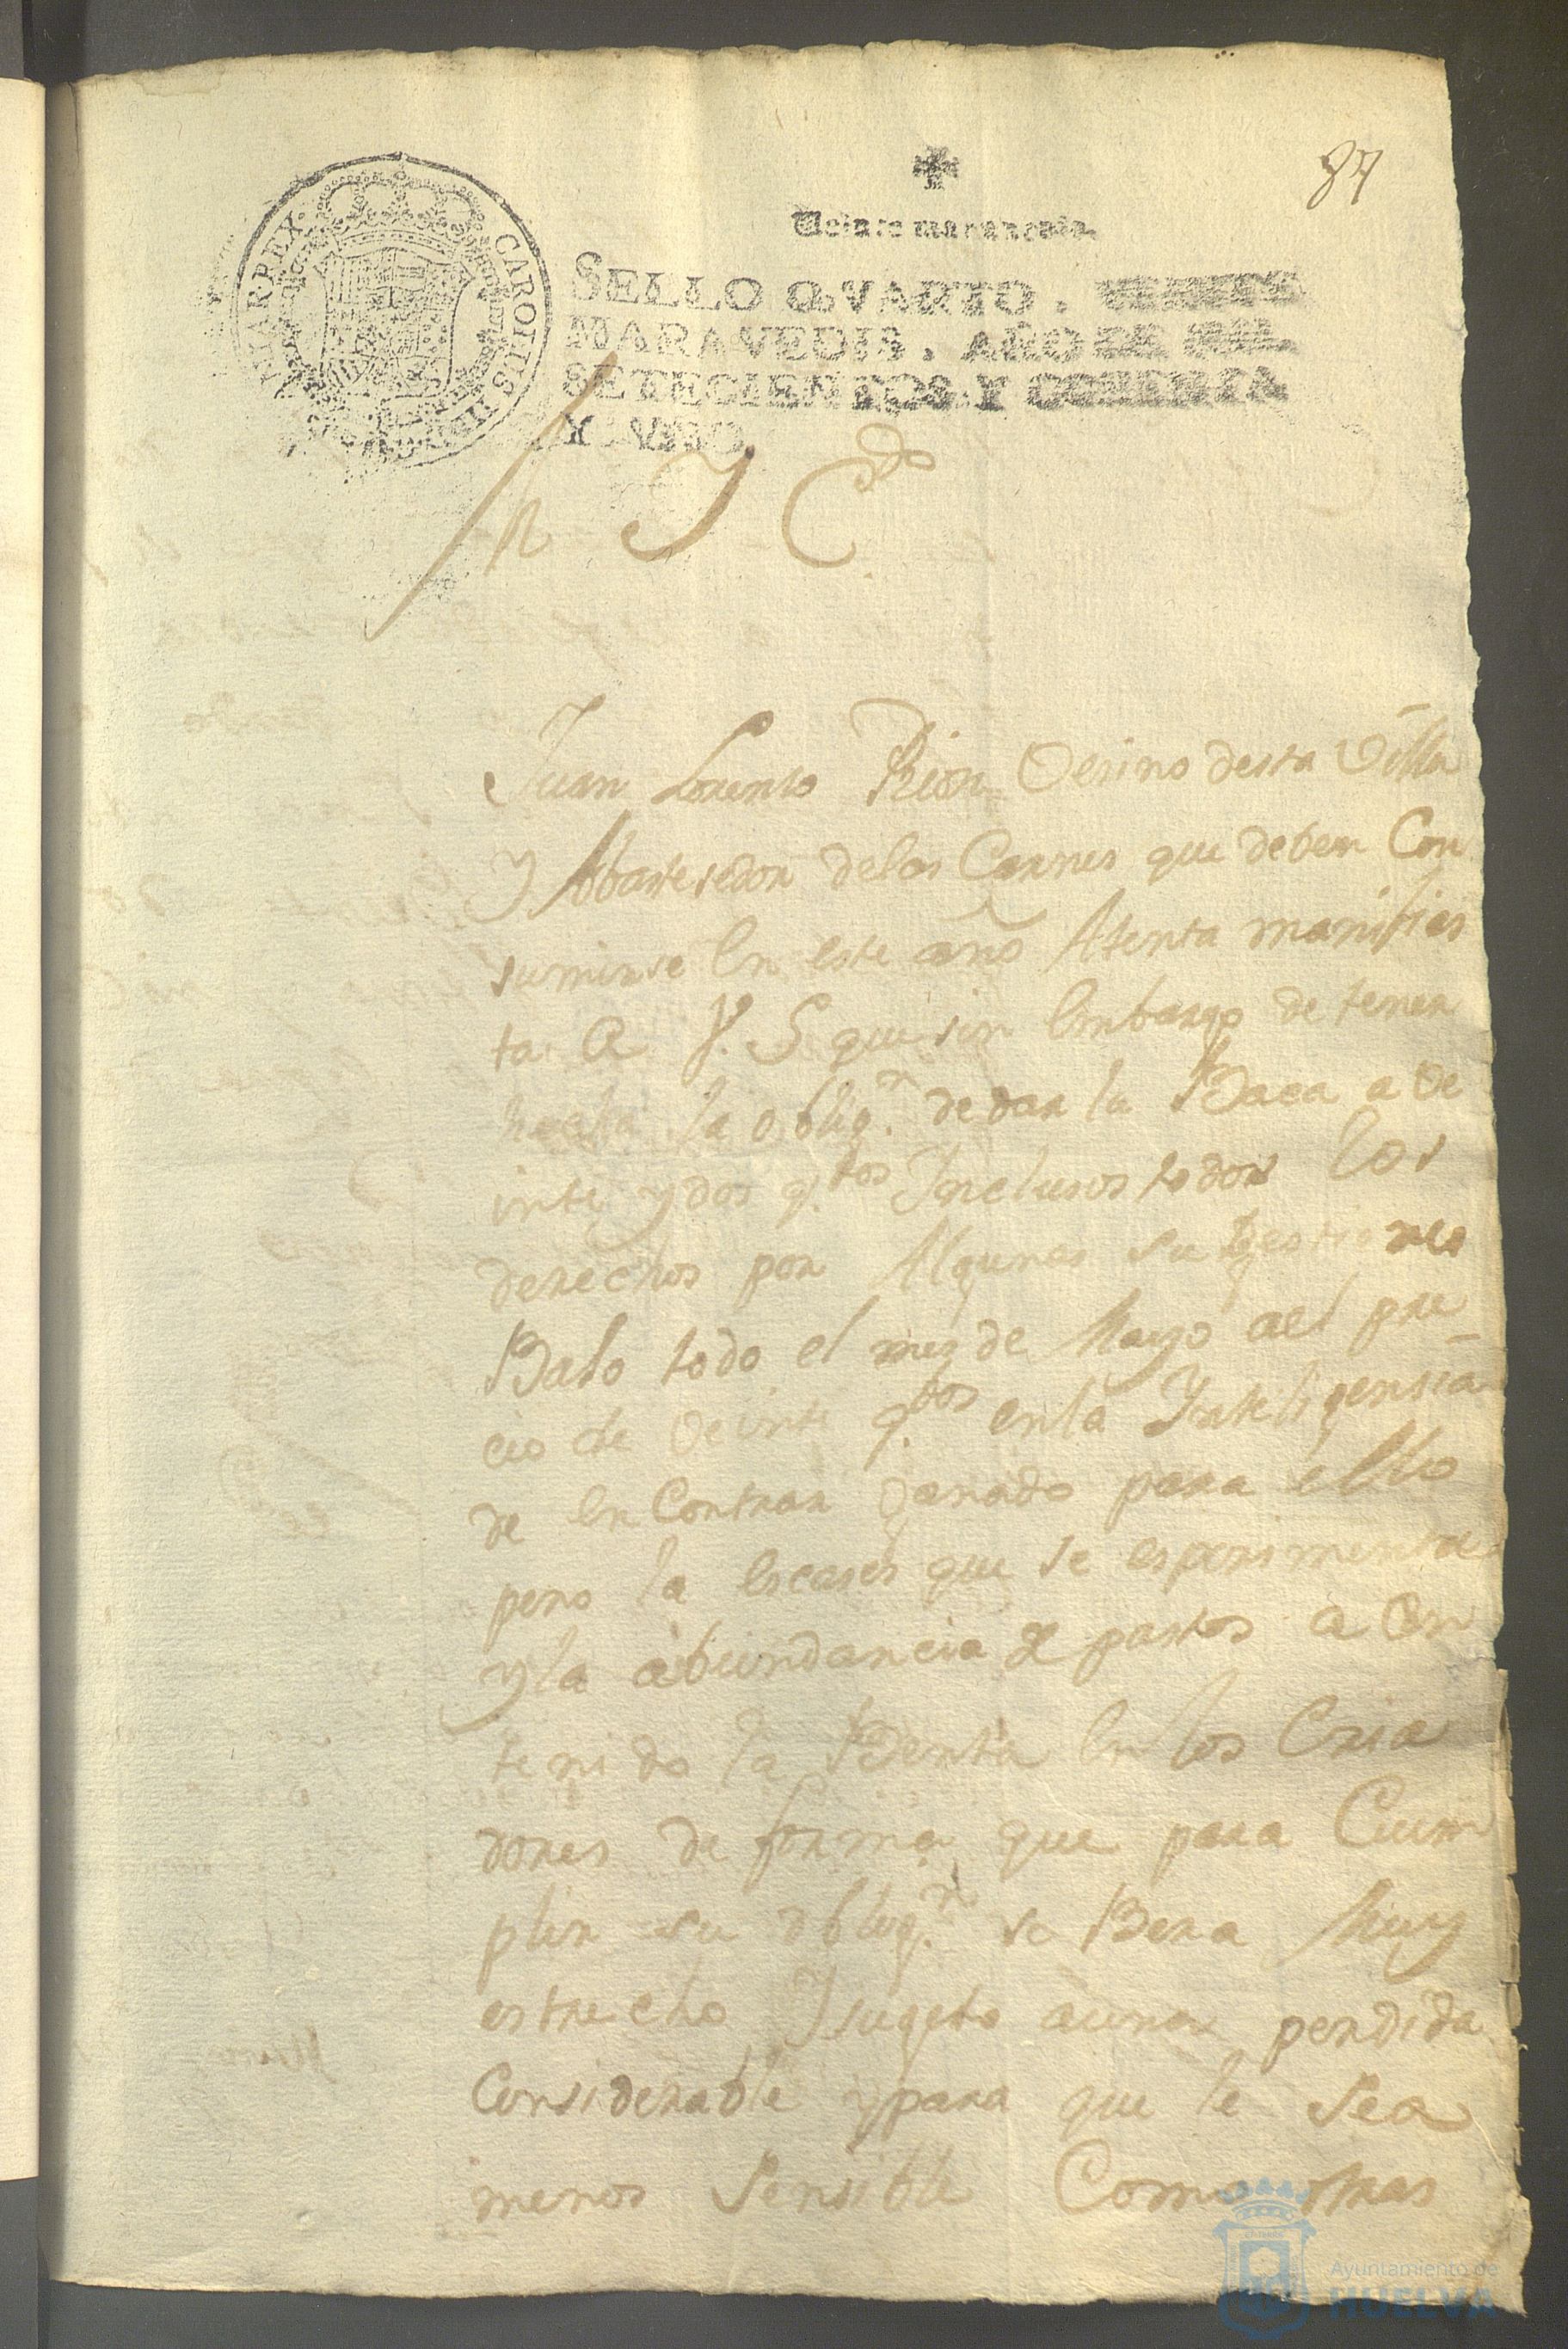 87
Veinte maravedis.
SELLO QVARTO, VEINTE
MARAVEDIS, AÑO DE MIL
SETECIENTOS Y
Y VNO
CAROLUS III
HISPANIAR REX
J C.do
Juan Lorenso Rion Vesino desta Villa
Y Abastesedor delas Carnes que deben Con
sumirse En este año Atenta manifies
ta A V. S que sin Embargo de tener
hecha la oblig.n de dar la Baca a Ve
inte y dos q.tos Inclusos todos los
derechos por Algunas sugestiones
Baxo todo el mes de Mayo ael pre
cio de Veinte q.tos enla Inteligensia
de EnContrar Ganado para ello
pero la Escases que se esperimenta
y la abundancia de pastos a en
tenido la Benta En los Cria
dores de forma que para Cum
plir su oblig.n se Bera Muy
estrecho Y sugeto auna perdida
Considerable y para que le sea
menos sensible Como otras
Ayuntamiento de
HUELVA